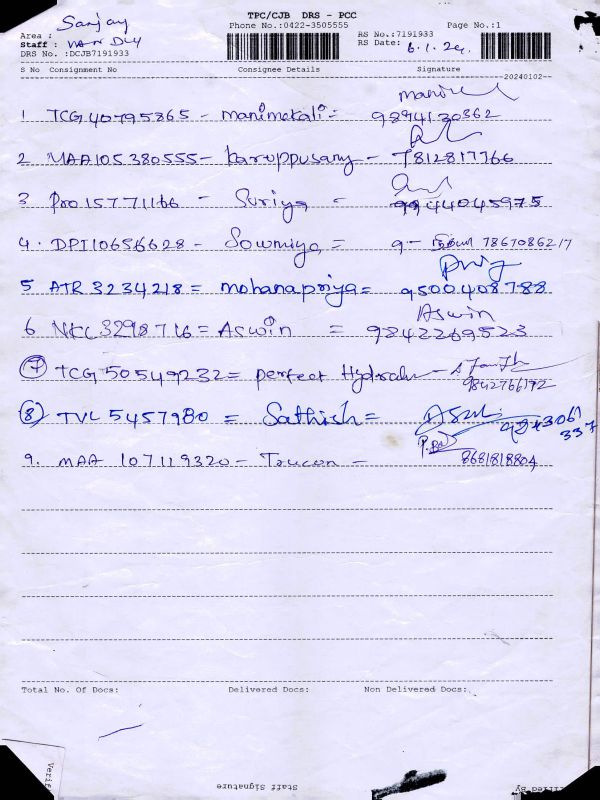 TPC/CJB DRS - PCC
Phone No.:0422-3505555
Page No.:1
Area : Sanjay
Staff : VAN DLY
DRS No. :DCJB7191933
RS No.:7191933
RS Date: 6.1.24.
S No Consignment No Consignee Details Signature
20240102
1 TCG40795865 - manimekali = 9894130362
2 MAA105380555 - karuppusamy - 7812817766
3 Pro15771166 - Suriya = 9944045975
4. DPI10656628 - Sowmiya = 9 - 7867086217
5 ATR 3234218 = mohanapriya = 9500408788
Aswin
6 NKL3298716 = Aswin = 9842269523
7 TCG 50549232 = perfect Hydraulic - 9842766172
8 TVL 5457980 = Sathish =
9. MAA 107119320 - Trucon - 8681818804
Total No. Of Docs: Delivered Docs: Non Delivered Docs:
Staff Signature